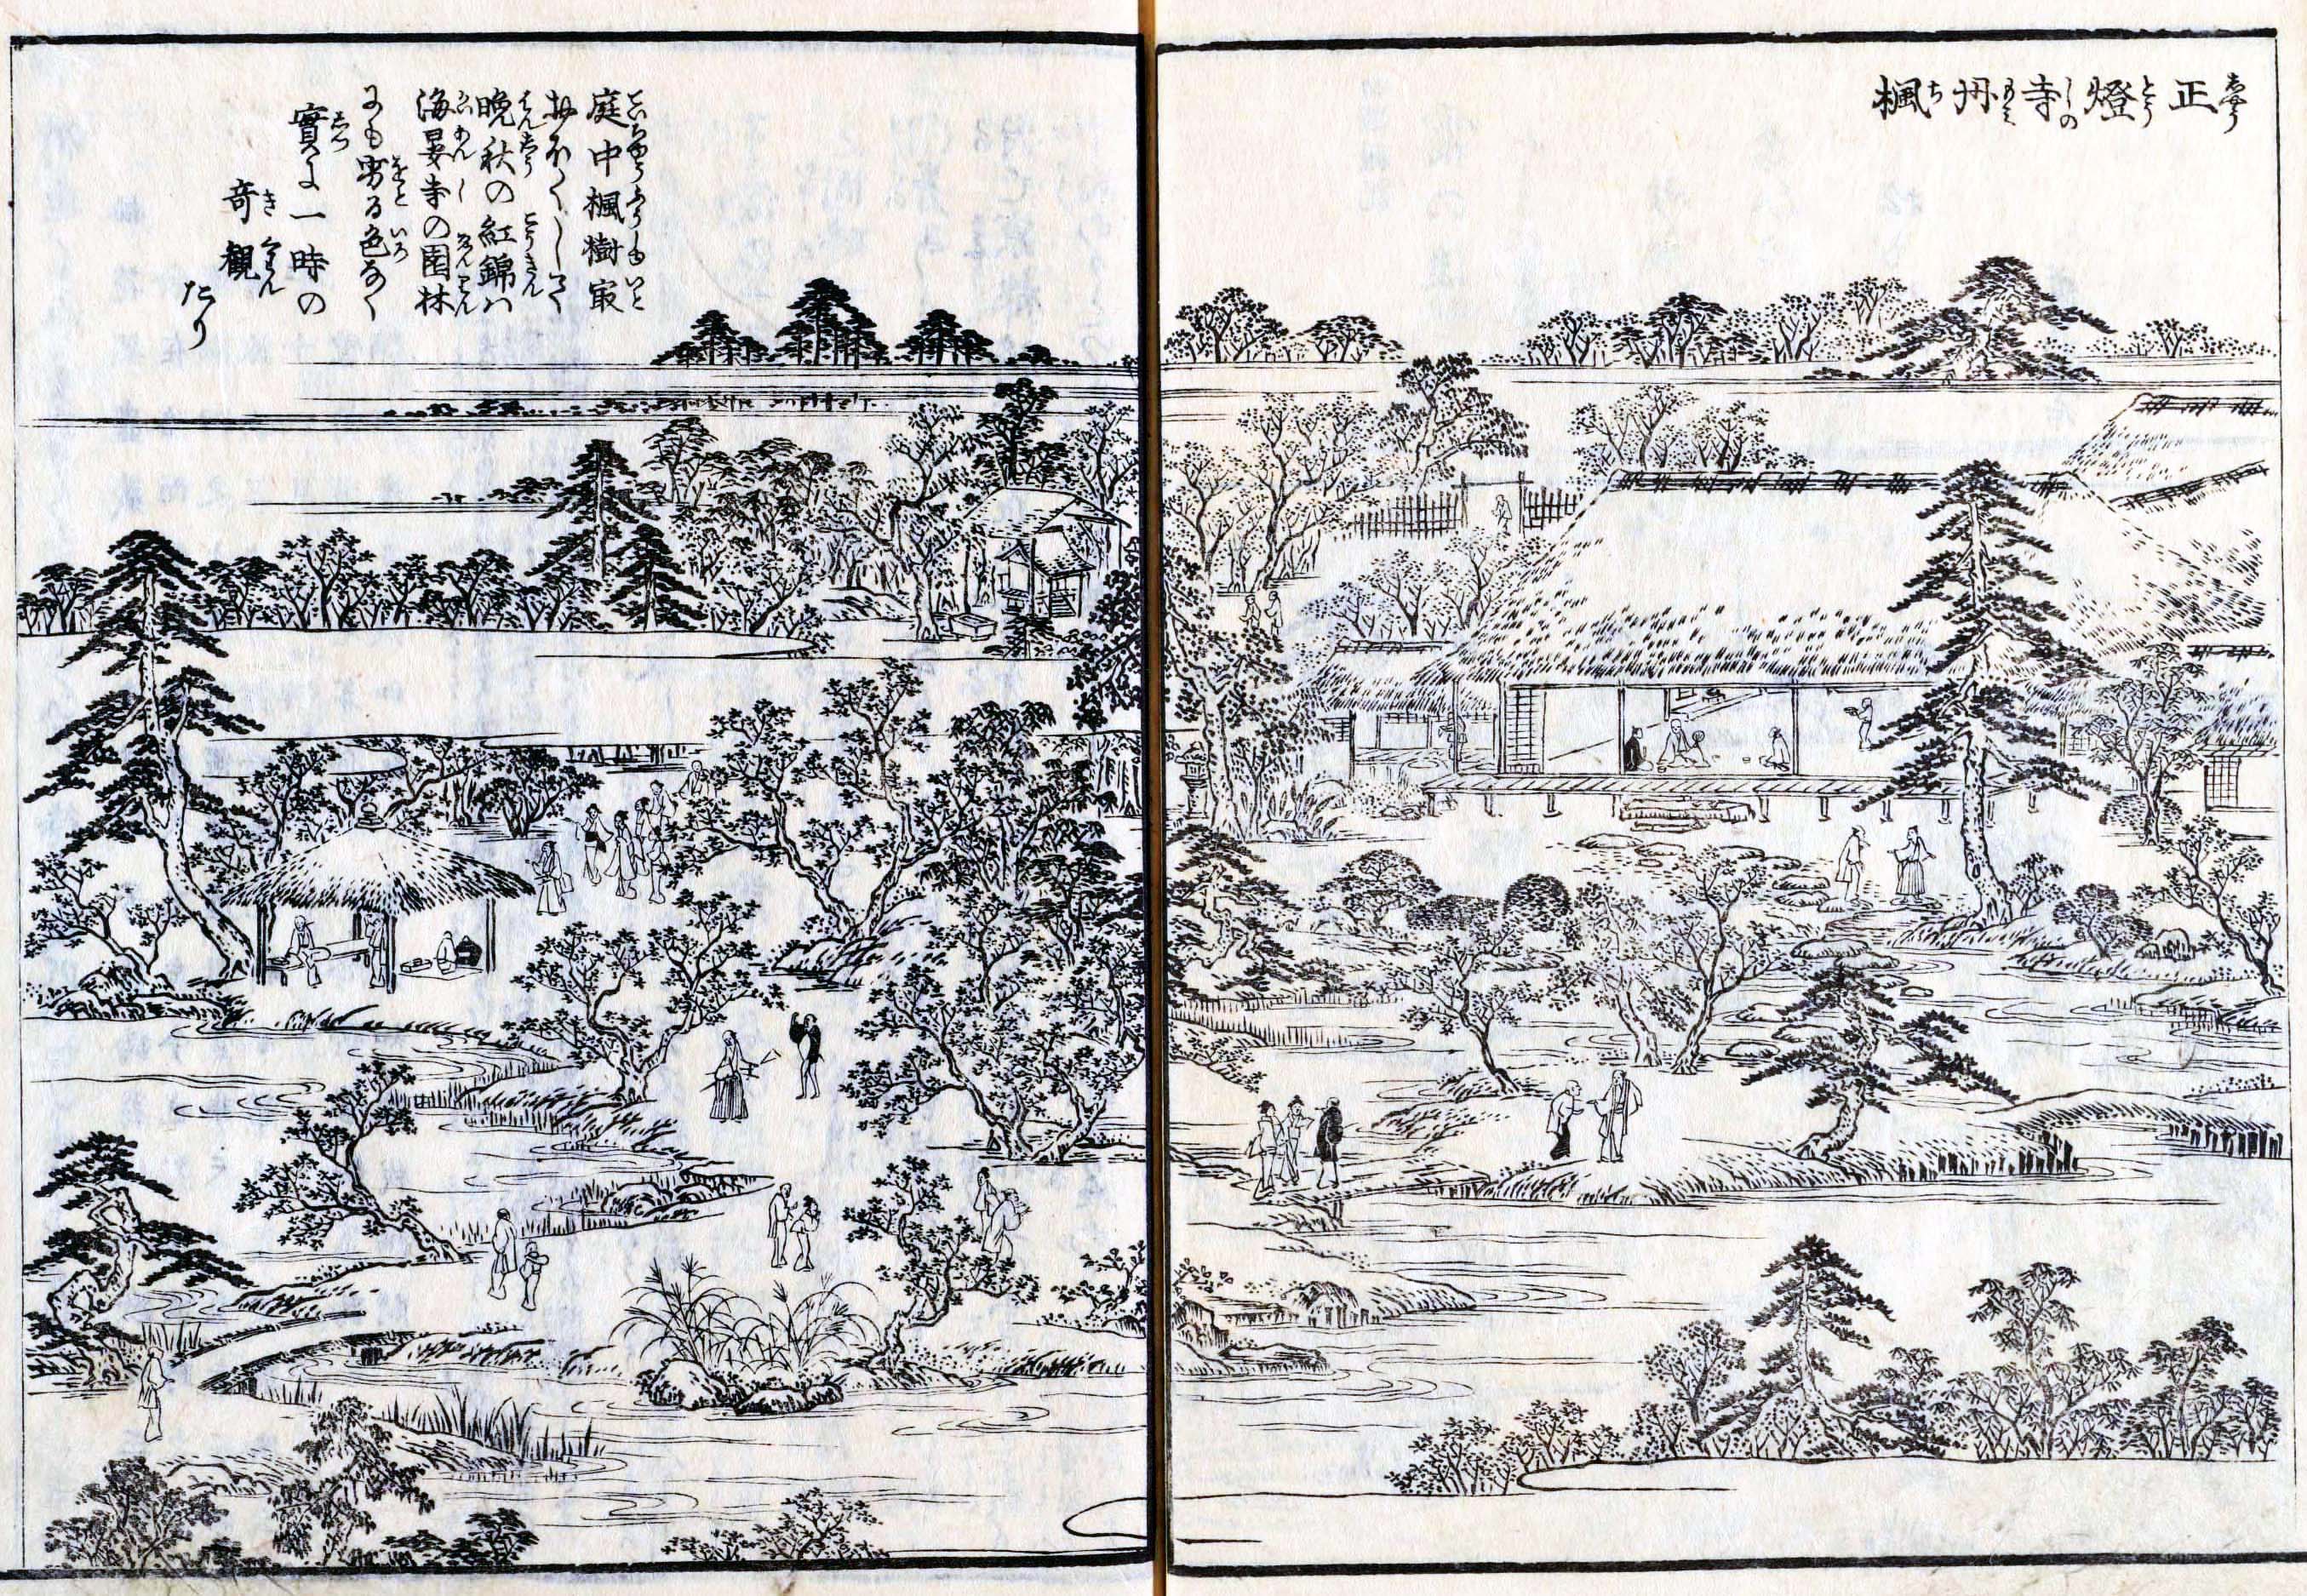 正燈寺丹楓
庭中楓樹最
おほくしてく
晩秋の紅錦ハ
海晏寺の園林
にも劣る色なく
實に一時の
奇観
たり